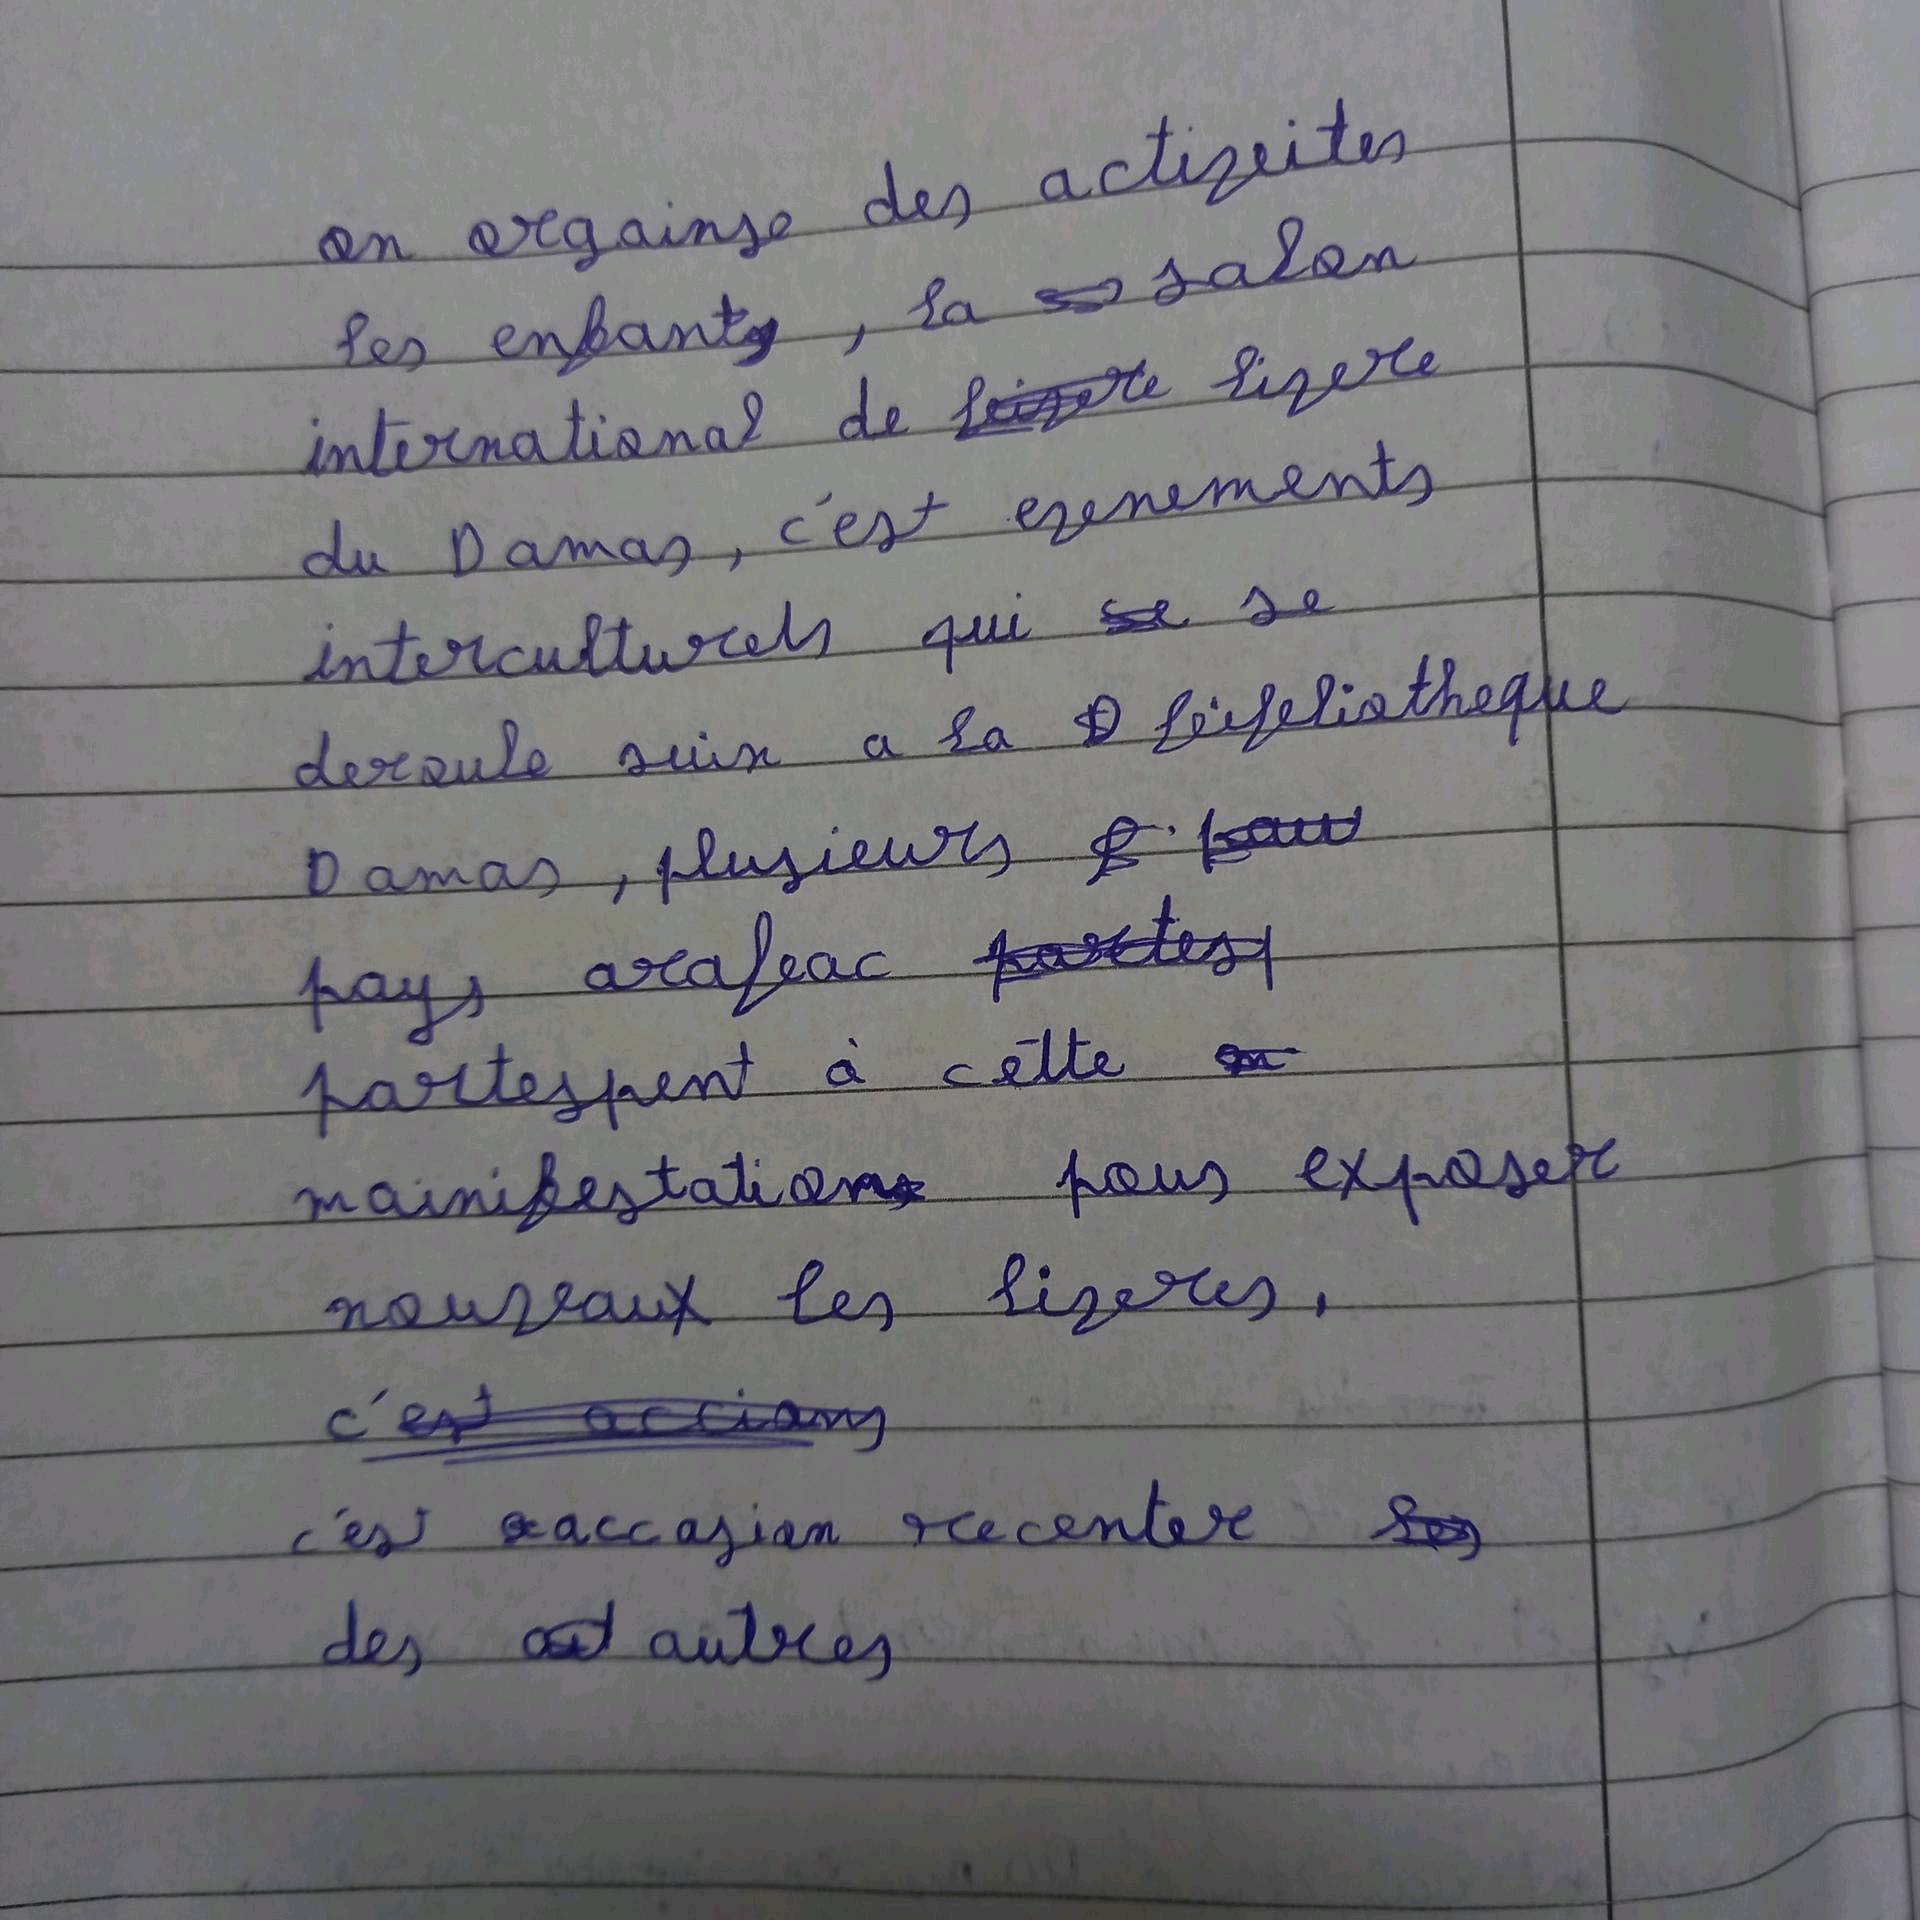 on orgainse des activites
les enfants, la salon
international de livre
du Damas, c'est evenements
interculturels qui se
deroule suix a la bibliotheque
Damas, plusieurs
pays arabac
partespent à cette
mainifestation pous exposer
nouveaux les livres.
c'est accians
c'est accasian recenter
des autres